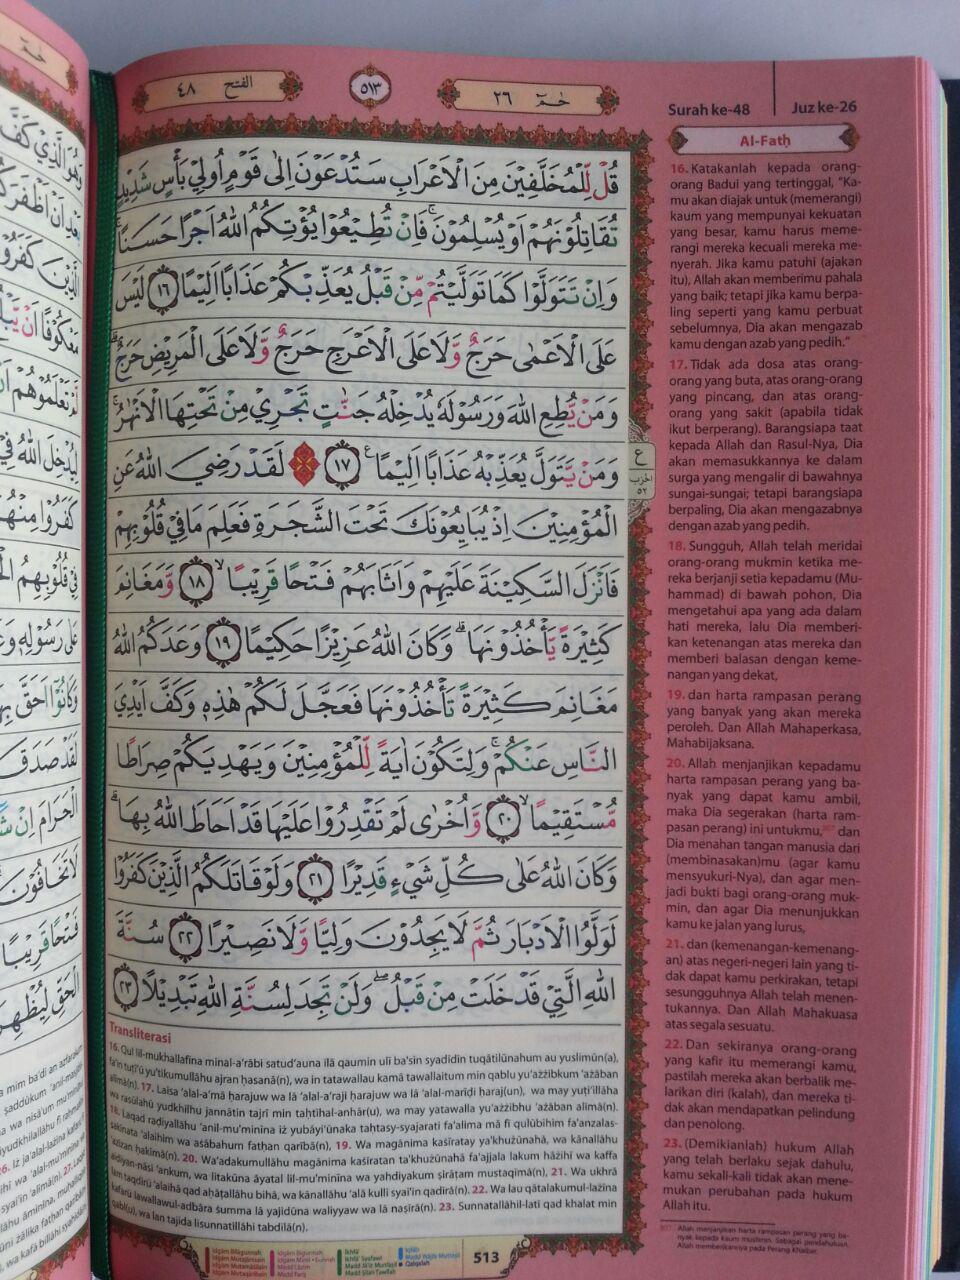 الفتح ٤٨
٥١٣
حٰمٓ ٢٦
Surah ke-48
Juz ke-26
Al-Fatḥ
قُلْ لِّلْمُخَلَّفِيْنَ مِنَ الْاَعْرَابِ سَتُدْعَوْنَ اِلٰى قَوْمٍ اُولِيْ بَأْسٍ شَدِيْدٍ
تُقَاتِلُوْنَهُمْ اَوْ يُسْلِمُوْنَ ۚ فَاِنْ تُطِيْعُوْا يُؤْتِكُمُ اللّٰهُ اَجْرًا حَسَنًا ۚ
وَاِنْ تَتَوَلَّوْا كَمَا تَوَلَّيْتُمْ مِّنْ قَبْلُ يُعَذِّبْكُمْ عَذَابًا اَلِيْمًا ١٦ لَيْسَ
عَلَى الْاَعْمٰى حَرَجٌ وَّلَا عَلَى الْاَعْرَجِ حَرَجٌ وَّلَا عَلَى الْمَرِيْضِ حَرَجٌ ۗ
وَمَنْ يُّطِعِ اللّٰهَ وَرَسُوْلَهٗ يُدْخِلْهُ جَنّٰتٍ تَجْرِيْ مِنْ تَحْتِهَا الْاَنْهٰرُ ۚ
وَمَنْ يَّتَوَلَّ يُعَذِّبْهُ عَذَابًا اَلِيْمًا ١٧ لَقَدْ رَضِيَ اللّٰهُ عَنِ
الْمُؤْمِنِيْنَ اِذْ يُبَايِعُوْنَكَ تَحْتَ الشَّجَرَةِ فَعَلِمَ مَا فِيْ قُلُوْبِهِمْ
فَاَنْزَلَ السَّكِيْنَةَ عَلَيْهِمْ وَاَثَابَهُمْ فَتْحًا قَرِيْبًا ۙ ١٨ وَّمَغَانِمَ
كَثِيْرَةً يَّأْخُذُوْنَهَا ۗ وَكَانَ اللّٰهُ عَزِيْزًا حَكِيْمًا ١٩ وَعَدَكُمُ اللّٰهُ
مَغَانِمَ كَثِيْرَةً تَأْخُذُوْنَهَا فَعَجَّلَ لَكُمْ هٰذِهٖ وَكَفَّ اَيْدِيَ
النَّاسِ عَنْكُمْ ۚ وَلِتَكُوْنَ اٰيَةً لِّلْمُؤْمِنِيْنَ وَيَهْدِيَكُمْ صِرَاطًا
مُّسْتَقِيْمًا ۙ ٢٠ وَّاُخْرٰى لَمْ تَقْدِرُوْا عَلَيْهَا قَدْ اَحَاطَ اللّٰهُ بِهَا ۗ
وَكَانَ اللّٰهُ عَلٰى كُلِّ شَيْءٍ قَدِيْرًا ٢١ وَلَوْ قَاتَلَكُمُ الَّذِيْنَ كَفَرُوْا
لَوَلَّوُا الْاَدْبَارَ ثُمَّ لَا يَجِدُوْنَ وَلِيًّا وَّلَا نَصِيْرًا ٢٢ سُنَّةَ
اللّٰهِ الَّتِيْ قَدْ خَلَتْ مِنْ قَبْلُ ۖ وَلَنْ تَجِدَ لِسُنَّةِ اللّٰهِ تَبْدِيْلًا ٢٣
ع
الحزب
٥٢
16. Katakanlah kepada orang-
orang Badui yang tertinggal, "Ka-
mu akan diajak untuk (memerangi)
kaum yang mempunyai kekuatan
yang besar, kamu harus meme-
rangi mereka kecuali mereka me-
nyerah. Jika kamu patuhi (ajakan
itu), Allah akan memberimu pahala
yang baik; tetapi jika kamu berpa-
ling seperti yang kamu perbuat
sebelumnya, Dia akan mengazab
kamu dengan azab yang pedih."
17. Tidak ada dosa atas orang-
orang yang buta, atas orang-orang
yang pincang, dan atas orang-
orang yang sakit (apabila tidak
ikut berperang). Barangsiapa taat
kepada Allah dan Rasul-Nya, Dia
akan memasukkannya ke dalam
surga yang mengalir di bawahnya
sungai-sungai; tetapi barangsiapa
berpaling, Dia akan mengazabnya
dengan azab yang pedih.
18. Sungguh, Allah telah meridai
orang-orang mukmin ketika me-
reka berjanji setia kepadamu (Mu-
hammad) di bawah pohon, Dia
mengetahui apa yang ada dalam
hati mereka, lalu Dia memberi-
kan ketenangan atas mereka dan
memberi balasan dengan keme-
nangan yang dekat,
19. dan harta rampasan perang
yang banyak yang akan mereka
peroleh. Dan Allah Mahaperkasa,
Mahabijaksana.
20. Allah menjanjikan kepadamu
harta rampasan perang yang ba-
nyak yang dapat kamu ambil,
maka Dia segerakan (harta ram-
pasan perang) ini untukmu, dan
Dia menahan tangan manusia dari
(membinasakan)mu (agar kamu
mensyukuri-Nya), dan agar men-
jadi bukti bagi orang-orang muk-
min, dan agar Dia menunjukkan
kamu ke jalan yang lurus,
21. dan (kemenangan-kemenang-
an) atas negeri-negeri lain yang ti-
dak dapat kamu perkirakan, tetapi
sesungguhnya Allah telah menen-
tukannya. Dan Allah Mahakuasa
atas segala sesuatu.
22. Dan sekiranya orang-orang
yang kafir itu memerangi kamu,
pastilah mereka akan berbalik me-
larikan diri (kalah), dan mereka ti-
dak akan mendapatkan pelindung
dan penolong.
23. (Demikianlah) hukum Allah
yang telah berlaku sejak dahulu,
kamu sekali-kali tidak akan mene-
mukan perubahan pada hukum
Allah itu.
Allah menjanjikan harta rampasan perang yang ba-
nyak kepada kaum muslimin. Sebagai pendahuluan,
Allah memberikannya pada Perang Khaibar.
Transliterasi
16. Qul lil-mukhallafīna minal-a'rābi satud'auna ilā qaumin ulī ba'sin syadīdin tuqātilūnahum au yuslimūn(a),
fa'in tuṭī'ū yu'tikumullāhu ajran ḥasanā(n), wa in tatawallau kamā tawallaitum min qablu yu'ażżibkum 'ażāban
alīmā(n). 17. Laisa 'alal-a'mā ḥarajuw wa lā 'alal-a'raji ḥarajuw wa lā 'alal-marīḍi ḥaraj(un), wa may yuṭi'illāha
wa rasūlahū yudkhilhu jannātin tajrī min taḥtihal-anhār(u), wa may yatawalla yu'ażżibhu 'ażāban alīmā(n).
18. Laqad raḍiyallāhu 'anil-mu'minīna iż yubāyi'ūnaka taḥtasy-syajarati fa'alima mā fī qulūbihim fa'anzalas-
sakīnata 'alaihim wa aṡābahum fatḥan qarībā(n), 19. Wa magānima kaṡīratay ya'khużūnahā, wa kānallāhu
'azīzan ḥakīmā(n). 20. Wa'adakumullāhu magānima kaṡīratan ta'khużūnahā fa'ajjala lakum hāżihī wa kaffa
aidiyan-nāsi 'ankum, wa litakūna āyatal lil-mu'minīna wa yahdiyakum ṣirāṭam mustaqīmā(n), 21. Wa ukhrā
lam taqdirū 'alaihā qad aḥāṭallāhu bihā, wa kānallāhu 'alā kulli syai'in qadīrā(n). 22. Wa lau qātalakumul-lażīna
kafarū lawallawul-adbāra ṡumma lā yajidūna waliyyaw wa lā naṣīrā(n). 23. Sunnatallāhil-latī qad khalat min
qabl(u), wa lan tajida lisunnatillāhi tabdīlā(n).
513